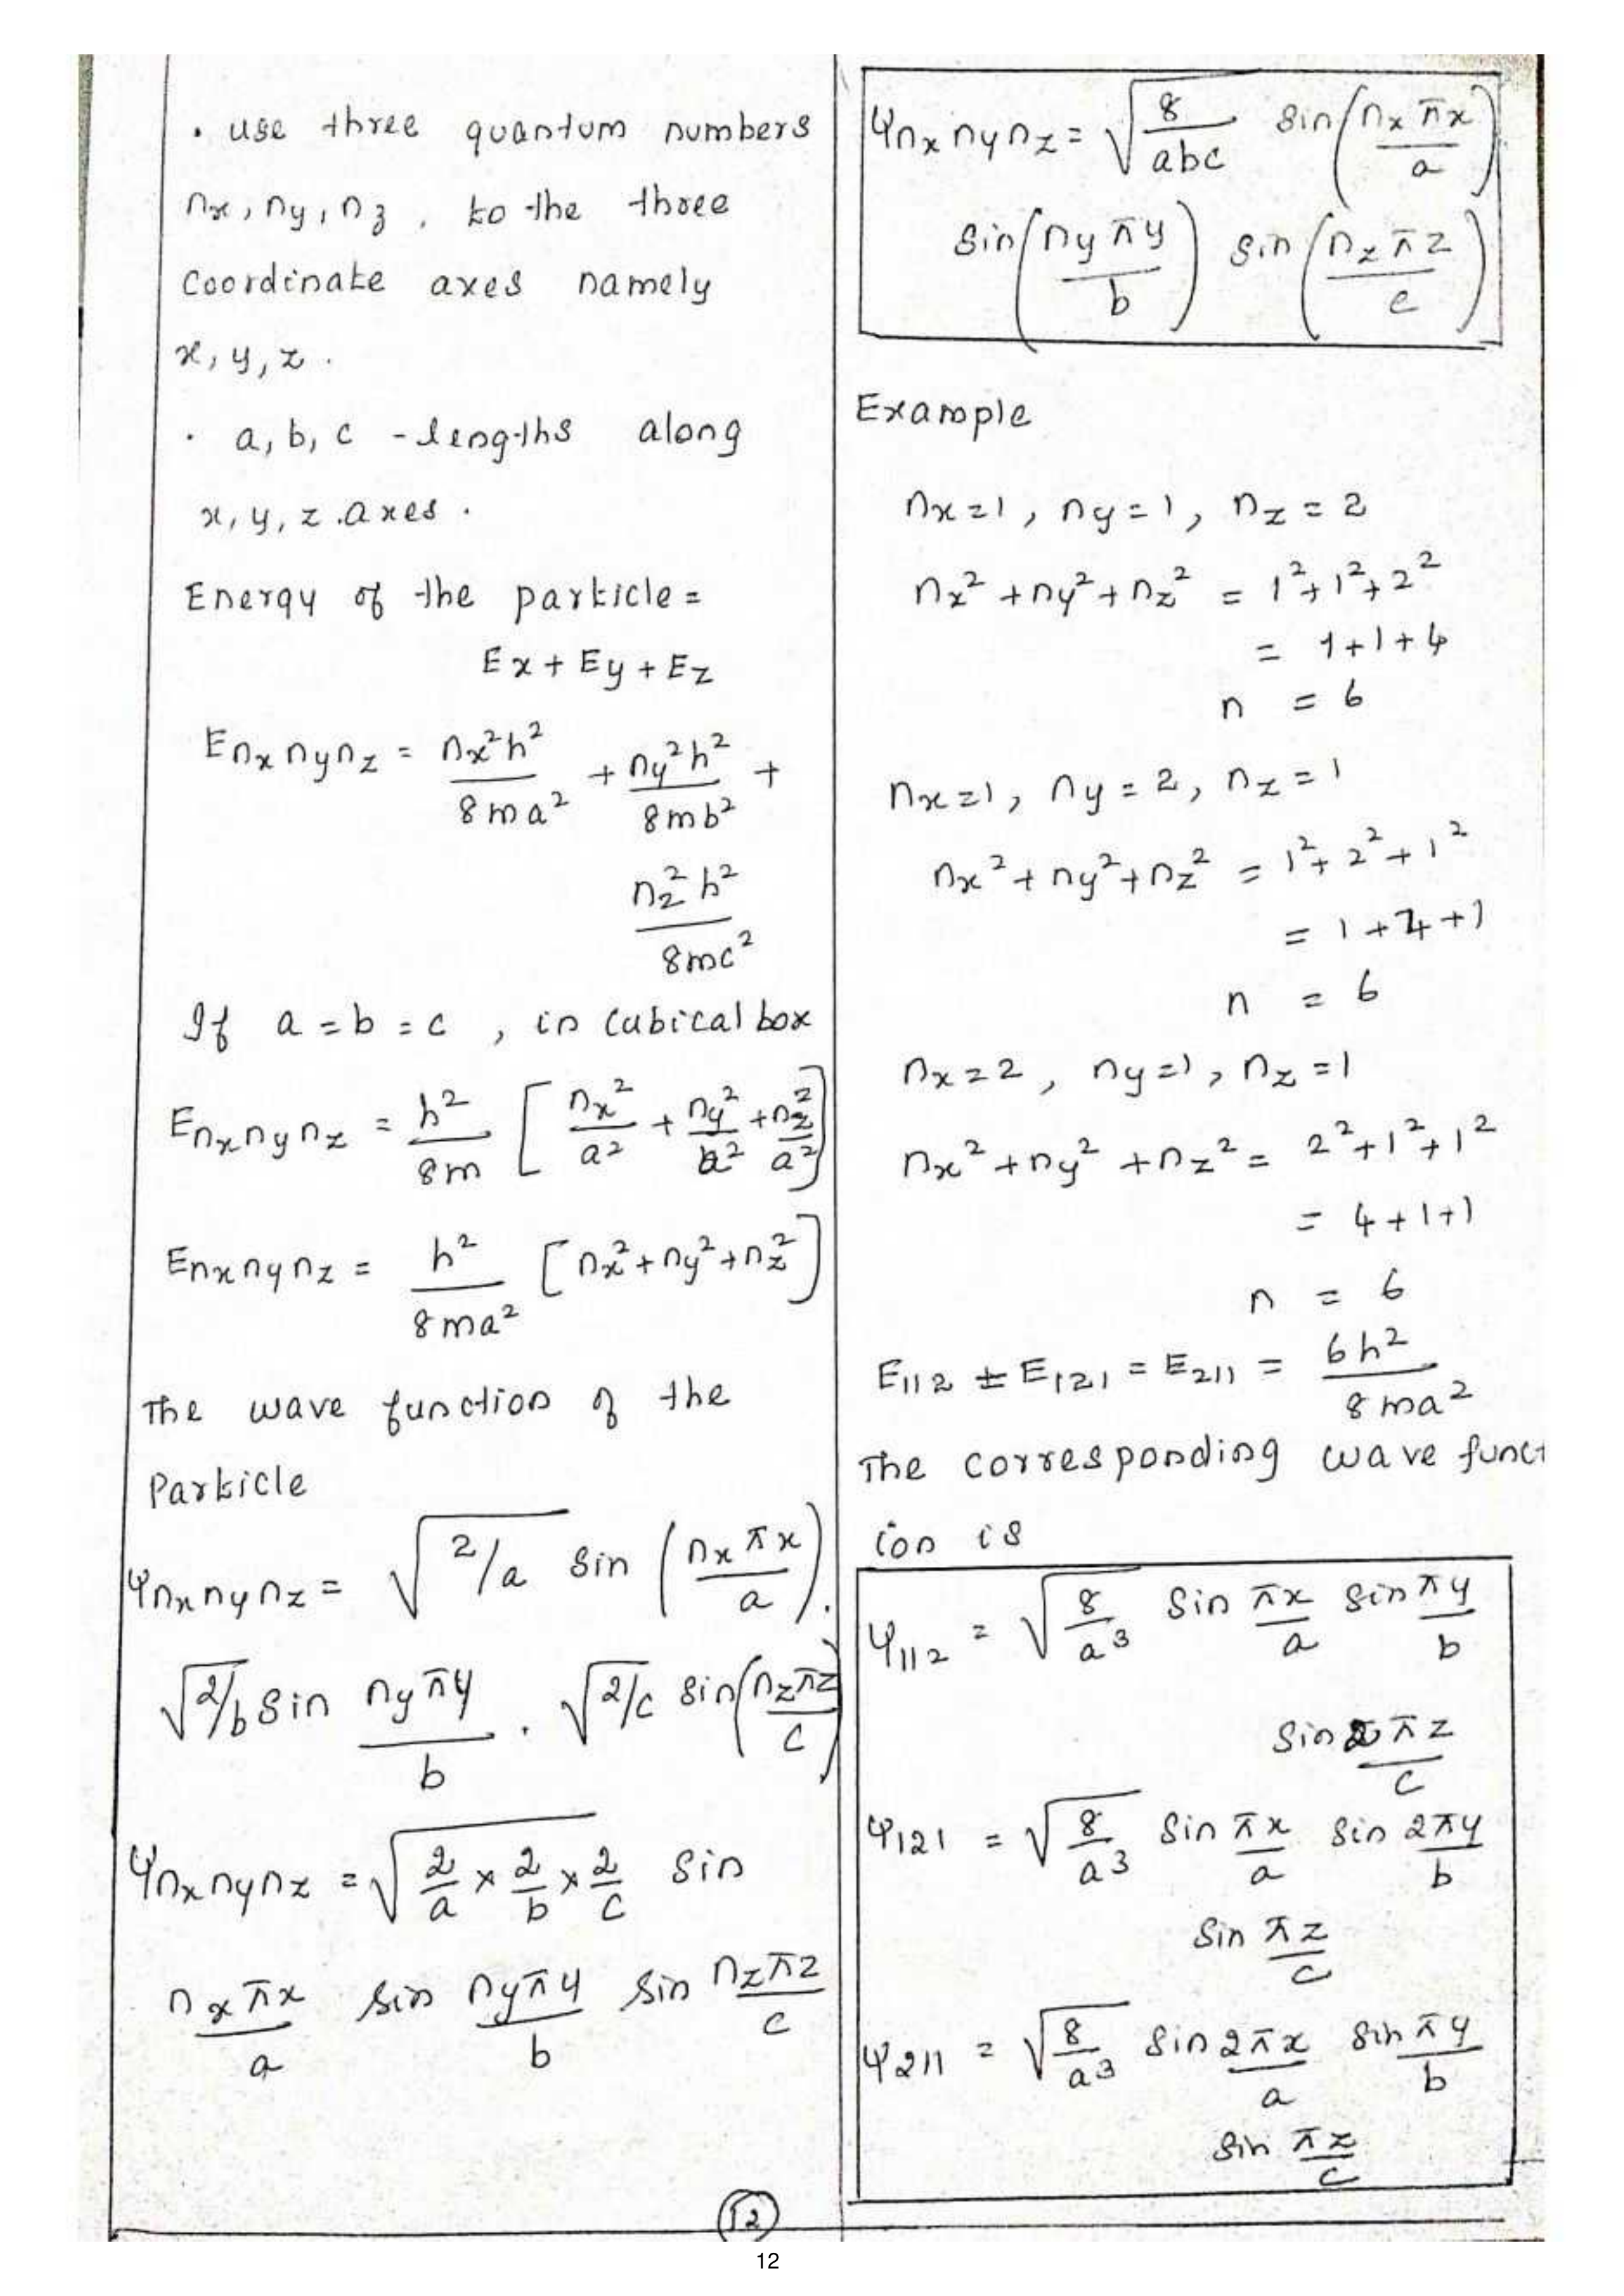 . use three quantum numbers
nx, ny, nz, to the three
coordinate axes namely
x, y, z.
. a, b, c - lengths along
x, y, z. axes.
Energy of the particle =
Ex + Ey + Ez
Enx ny nz = nx²h²/8ma² + ny²h²/8mb² +
nz²h²/8mc²
If a = b = c, in cubical box
Enx ny nz = h²/8m [nx²/a² + ny²/a² + nz²/a²]
Enx ny nz = h²/8ma² [nx² + ny² + nz²]
The wave function of the
Particle
Ψnx ny nz = √2/a sin (nx πx/a).
√2/b sin ny πy/b . √2/c sin (nz πz/c)
Ψnx ny nz = √(2/a × 2/b × 2/c) sin
nx πx/a sin ny πy/b sin nz πz/c
Ψnx ny nz = √(8/abc) sin (nx πx/a)
sin (ny πy/b) sin (nz πz/c)
Example
nx = 1, ny = 1, nz = 2
nx² + ny² + nz² = 1² + 1² + 2²
= 1 + 1 + 4
n = 6
nx = 1, ny = 2, nz = 1
nx² + ny² + nz² = 1² + 2² + 1²
= 1 + 4 + 1
n = 6
nx = 2, ny = 1, nz = 1
nx² + ny² + nz² = 2² + 1² + 1²
= 4 + 1 + 1
n = 6
E112 = E121 = E211 = 6h²/8ma²
The corresponding wave funct
ion is
Ψ112 = √(8/a³) sin πx/a sin πy/b
sin 2πz/c
Ψ121 = √(8/a³) sin πx/a sin 2πy/b
sin πz/c
Ψ211 = √(8/a³) sin 2πx/a sin πy/b
sin πz/c
12
12